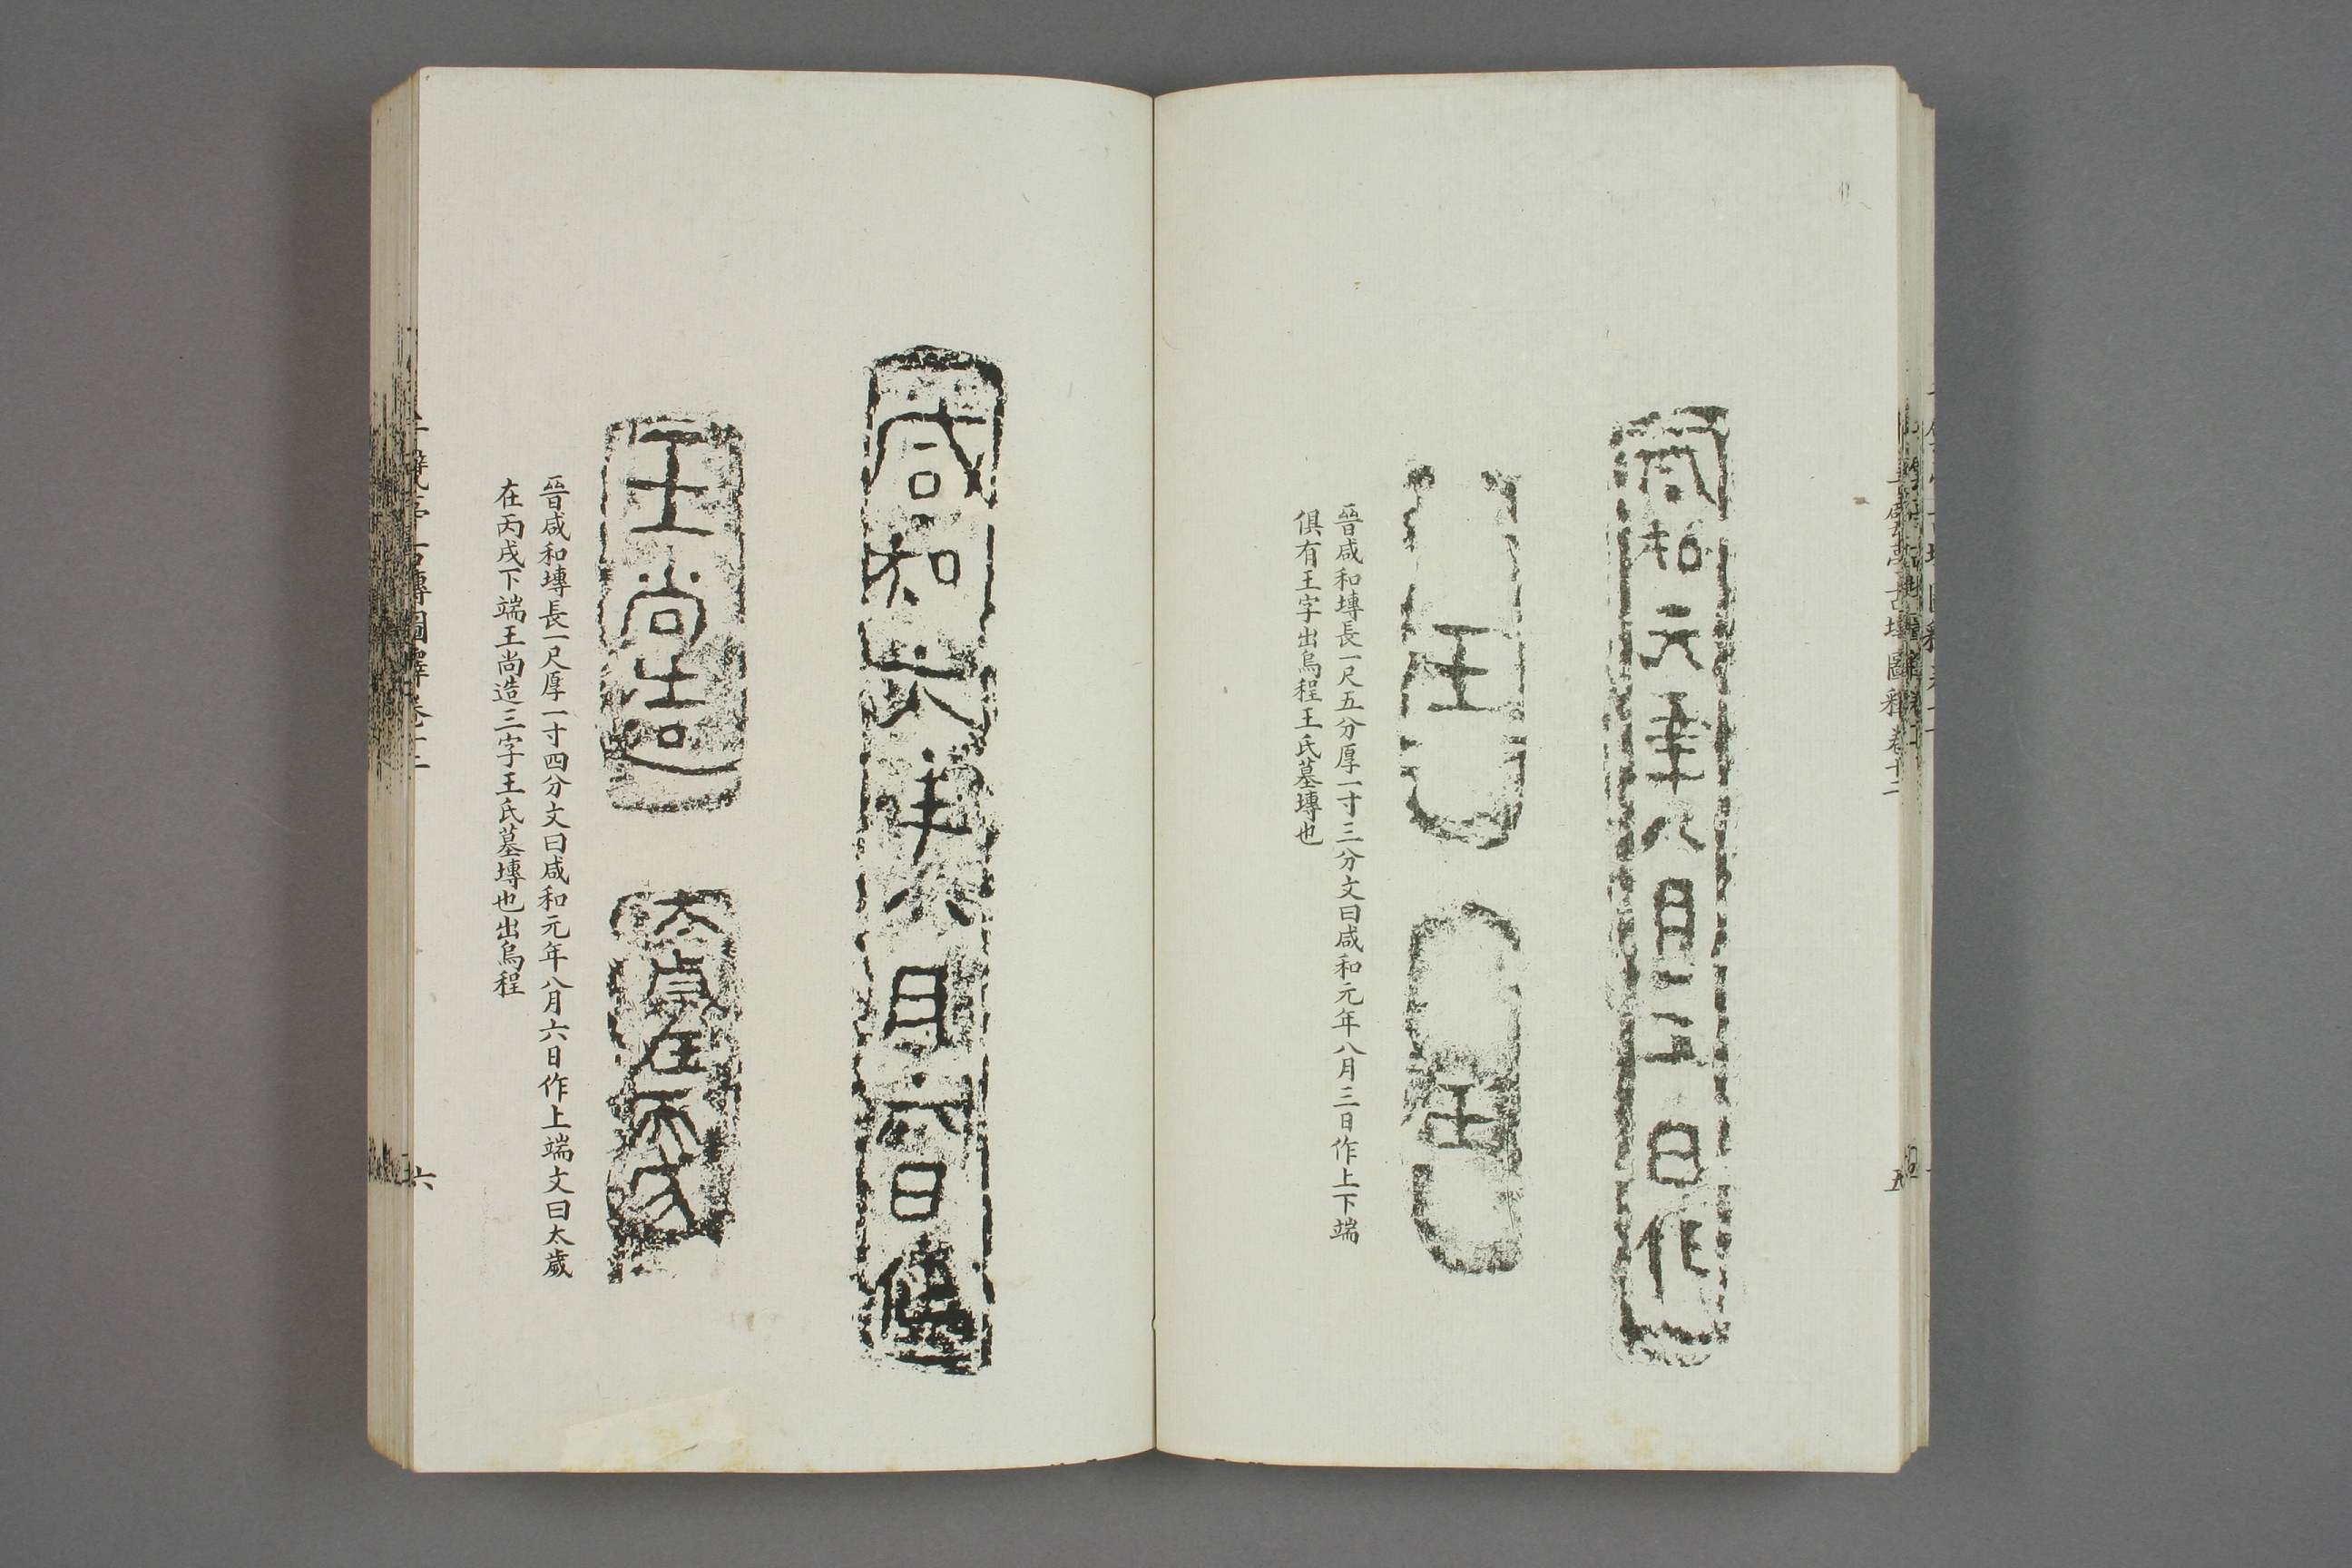 千甓亭古塼圖釋卷十二
五
咸和元年八月三日作
王
王
晉咸和塼長一尺五分厚一寸三分文曰咸和元年八月三日作上下端
俱有王字出烏程王氏墓塼也
咸和元年八月六日作
王尚造
太歲在丙戌
晉咸和塼長一尺厚一寸四分文曰咸和元年八月六日作上端文曰太歲
在丙戌下端王尚造三字王氏墓塼也出烏程
千甓亭古塼圖釋卷十二
六